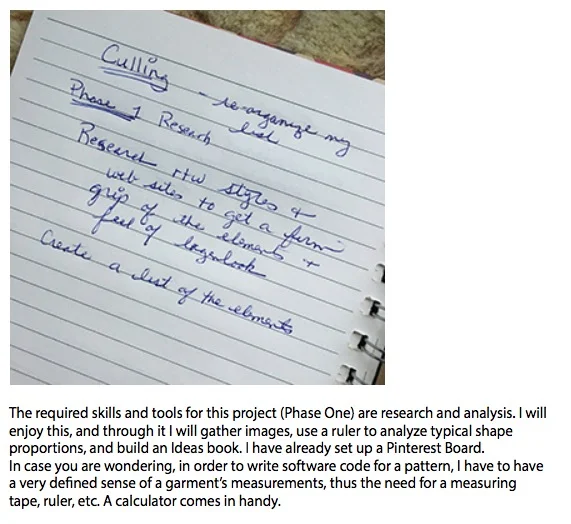 Culling - re-organize my
list
Phase 1 Research
Research rtw styles +
web sites to get a firm
grip of the elements +
feel of lagenlook
Create a list of the elements
The required skills and tools for this project (Phase One) are research and analysis. I will
enjoy this, and through it I will gather images, use a ruler to analyze typical shape
proportions, and build an Ideas book. I have already set up a Pinterest Board.
In case you are wondering, in order to write software code for a pattern, I have to have
a very defined sense of a garment’s measurements, thus the need for a measuring
tape, ruler, etc. A calculator comes in handy.